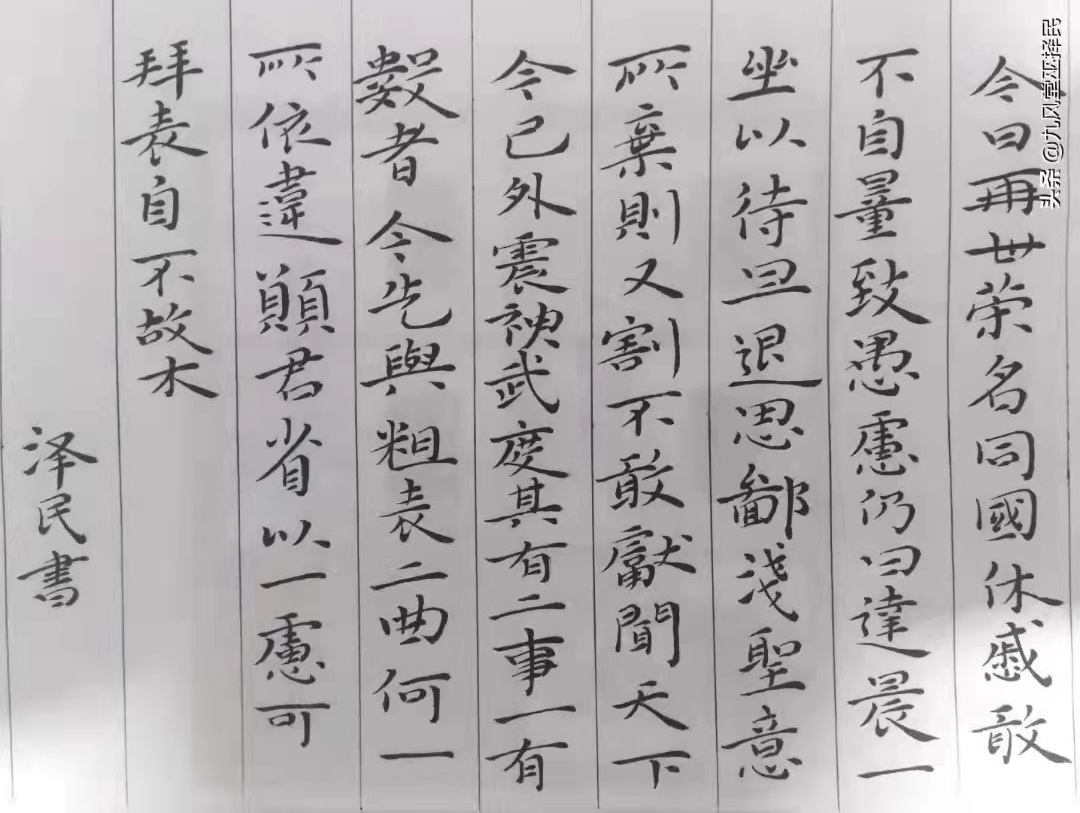 今日再世荣名同國休戚敢
不自量致愚慮仍曰達晨一
坐以待旦退思鄙淺聖意
所棄則又割不敢獻聞天下
今已外震神武度其有二事一有
數者令先與粗表二曲何一
所依違顛君省以一慮可
拜表自不故木
泽民書
头条 @九风堂巫择民